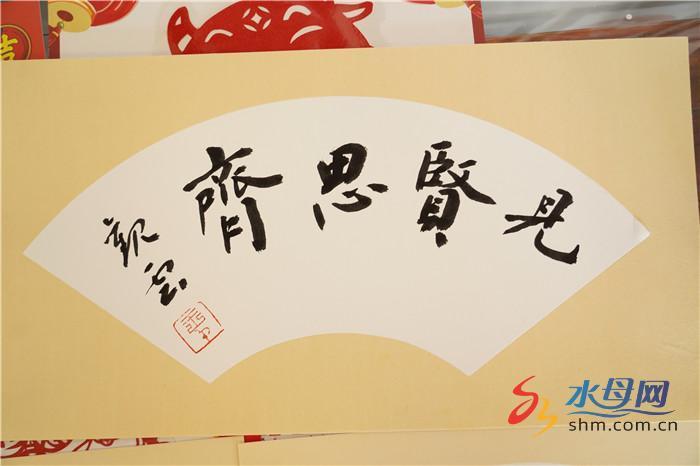 吉
見賢思齊
水母网
shm.com.cn